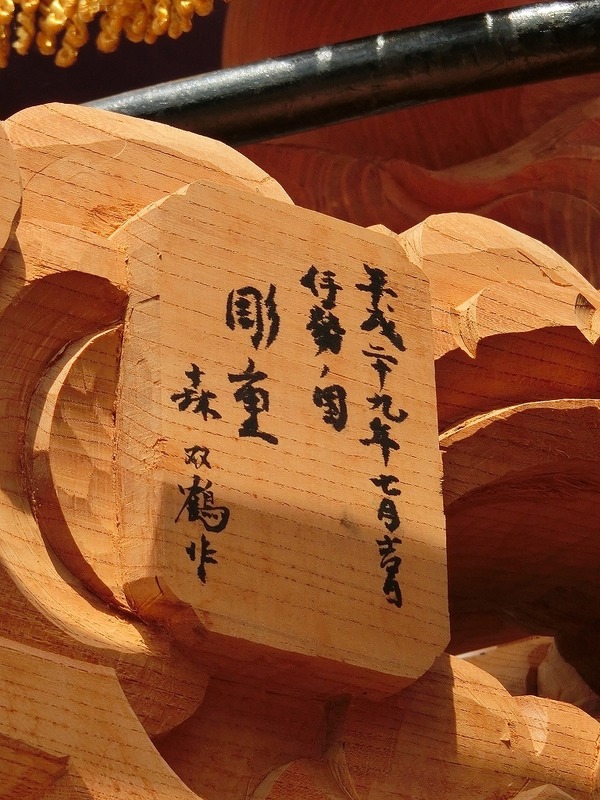 平成二十九年七月吉日
伊勢ノ国
彫重
森双鶴作